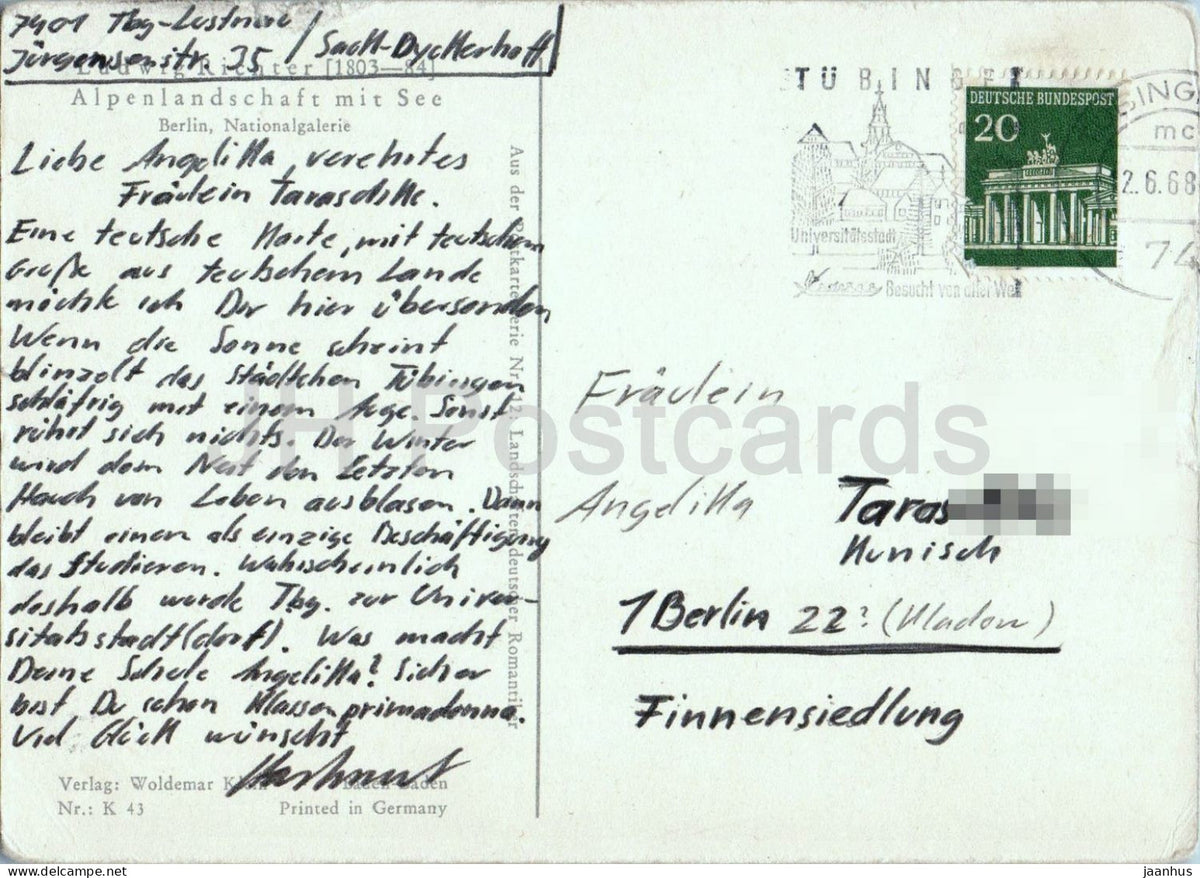 7401 Tbg-Lustnau /
Jürgensenstr. 35 / Sack-Dyckerhoff
Ludwig Richter [1803—84]
Alpenlandschaft mit See
Berlin, Nationalgalerie
Liebe Angelika, verehrtes
Fräulein
Eine teutsche Karte, mit teutschem
Gruße aus teutschem Lande
möchte ich Dir hier übersenden
Wenn die Sonne scheint
blinzelt das Städtchen Tübingen
schläfrig mit einem Auge. Sonst
rührt sich nichts. Der Winter
wird dem Nest den letzten
Hauch von Leben ausblasen. Dann
bleibt einem als einzige Beschäftigung
das Studieren. Wahrscheinlich
deshalb wurde Tbg. zur Univer-
sitätsstadt(dorf). Was macht
Deine Schule Angelika? Sicher
bist Du schon Klassenprimadonna.
Viel Glück wünscht
Verlag: Woldemar Klein Baden-Baden
Nr.: K 43 Printed in Germany
Aus der Postkartenserie Nr. 12: Landschaften deutscher Romantiker
TÜBINGEN
Universitätsstadt
Besucht von aller Welt
DEUTSCHE BUNDESPOST
20
BINGE
mc
2.6.68
74
Fräulein
Angelika Taras
Kunisch
1 Berlin 22? (Kladow)
Finnensiedlung
JH Postcards
https://www.delcampe.net
jaanhus